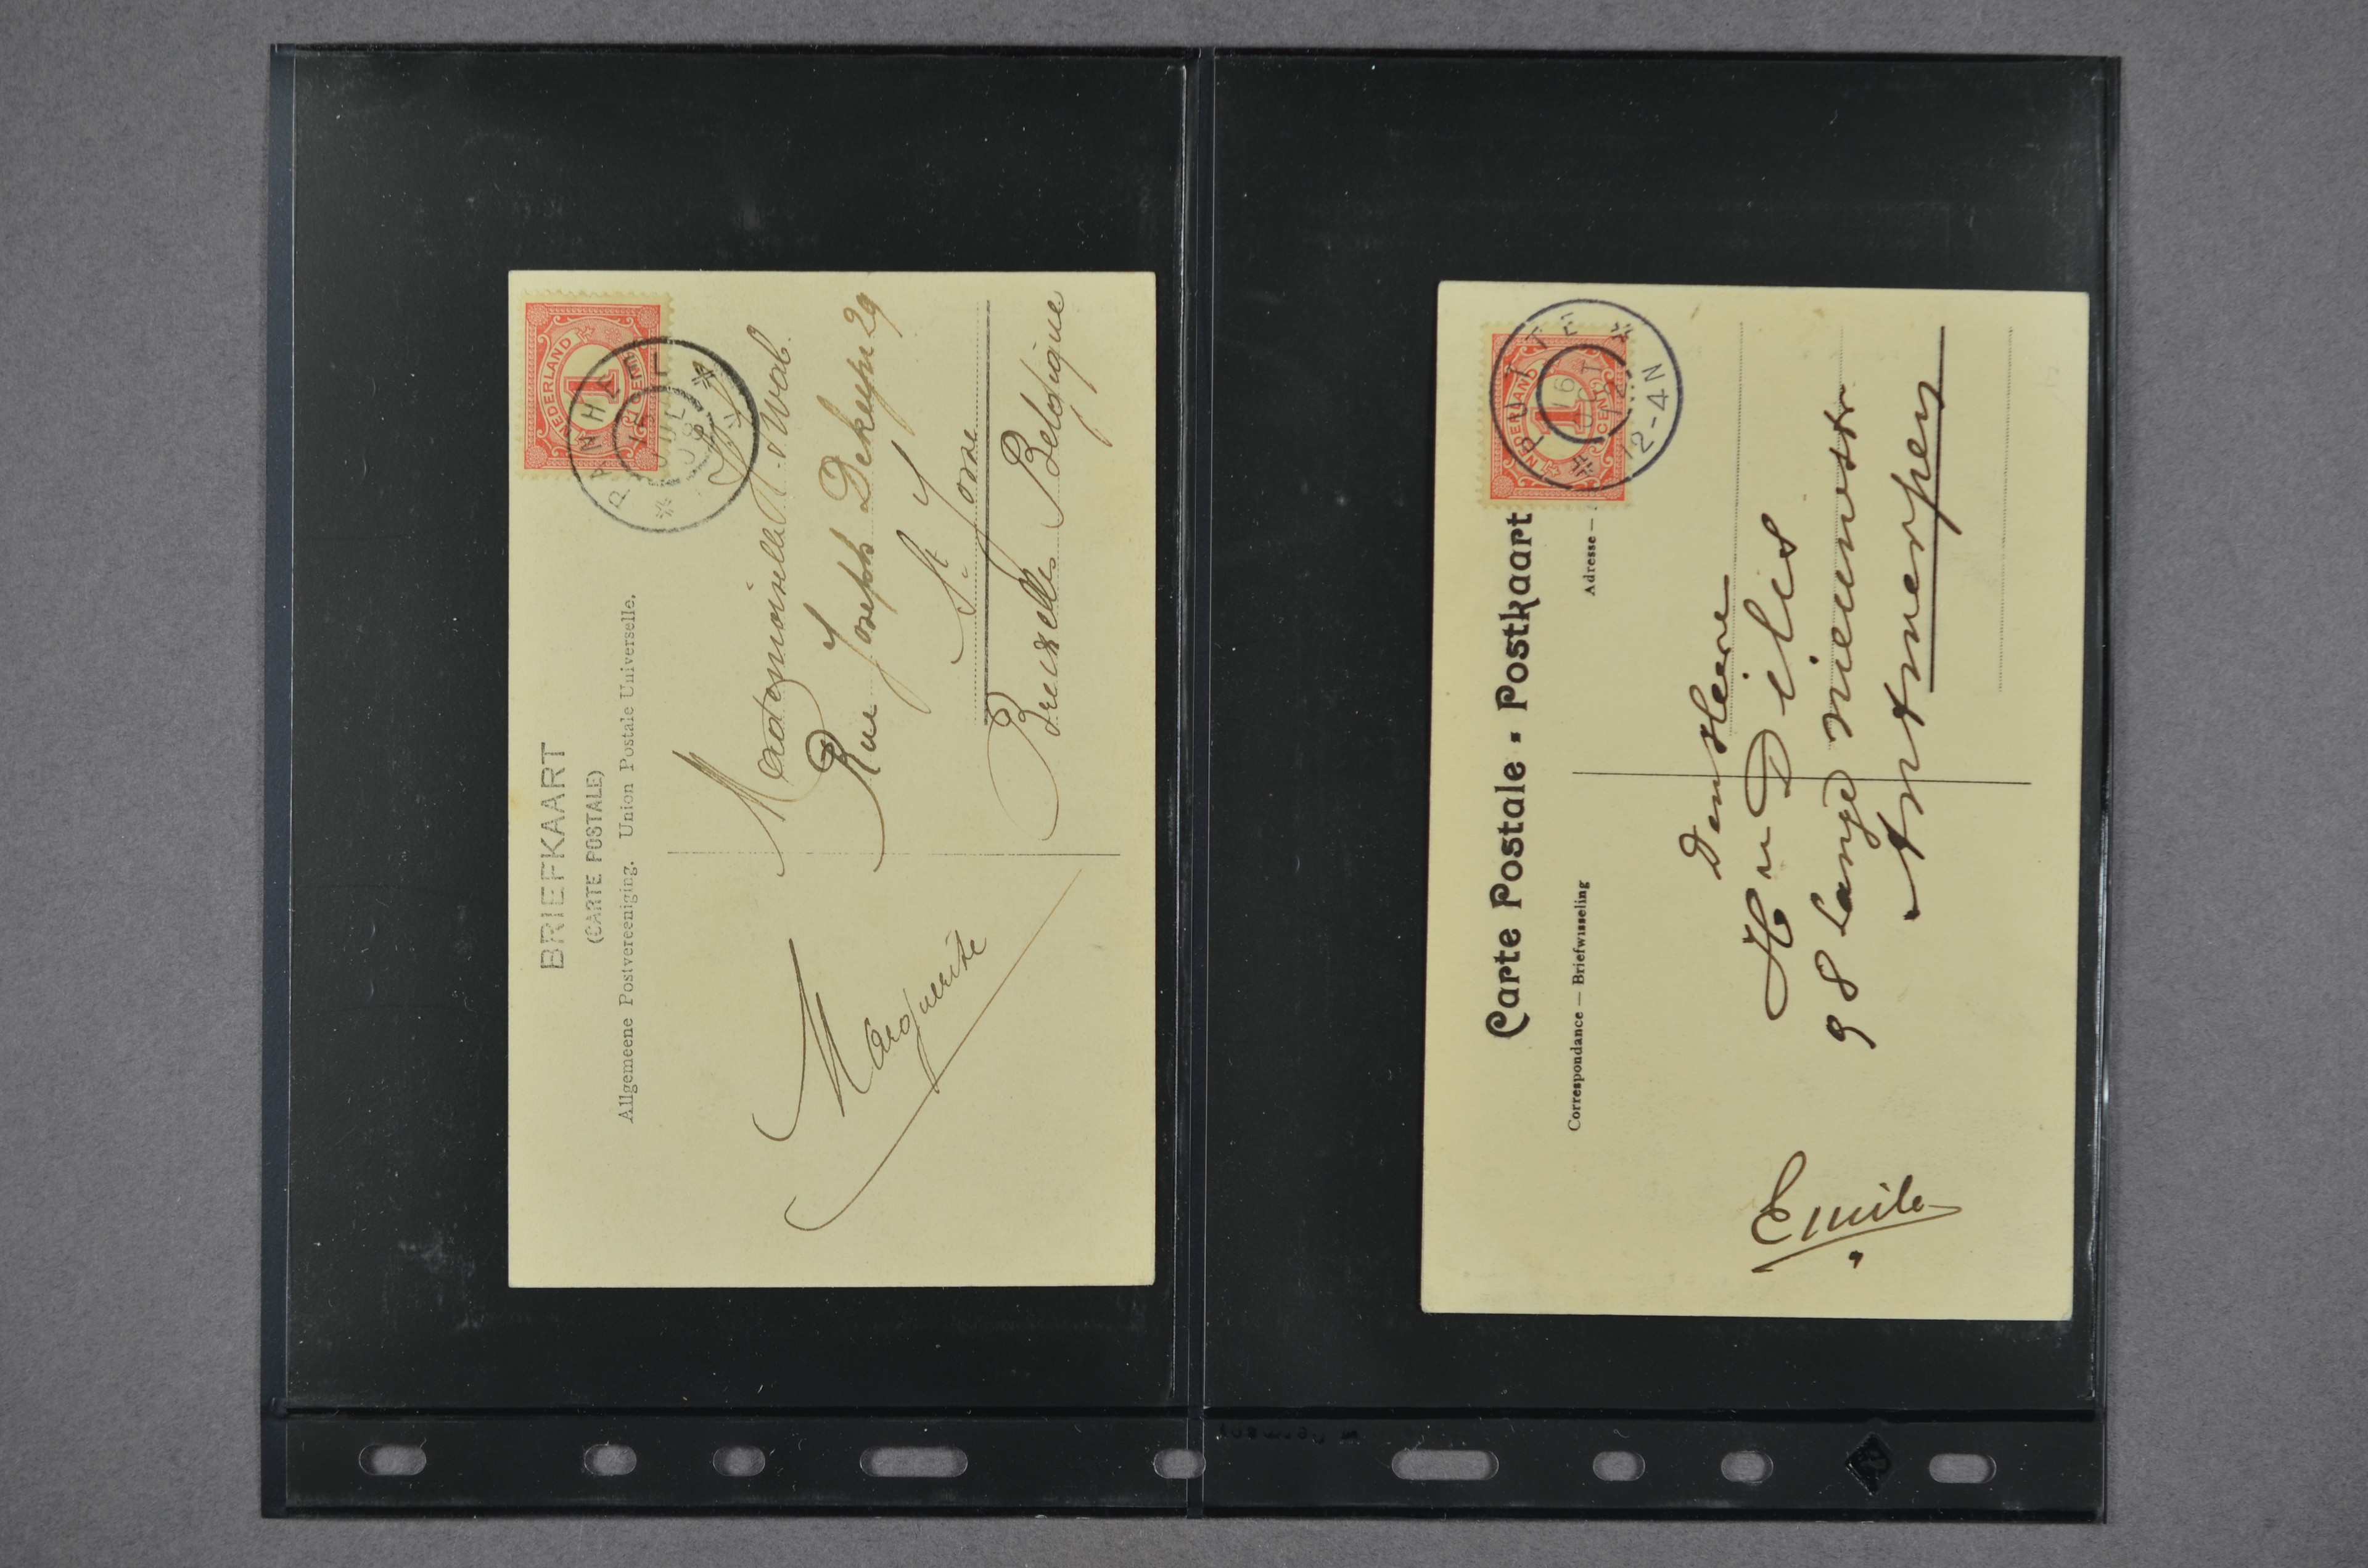 BRIEFKAART
(CARTE POSTALE)
Allgemeene Postvereeniging. Union Postale Universelle.
NEDERLAND
1
CENT
15 JUL 08
Mademoiselle
Rue Joseph Dekeyn 29
St Josse
Bruxelles Belgique
Marguerite
Carte Postale - Postkaart
Correspondance — Briefwisseling
Adresse —
NEDERLAND
1
CENT
PUTTE
16 OCT 12
12-4N
Den Heere
H v Dilis
98 lange nieuwstr
Antwerpen
Emile